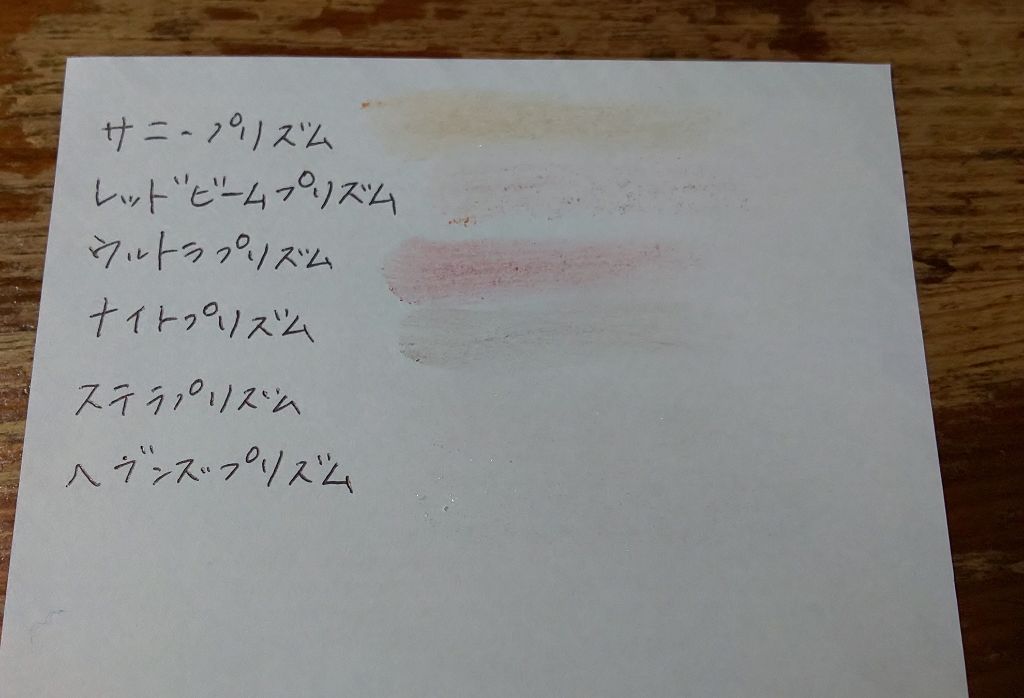 サニープリズム
レッドビームプリズム
ウルトラプリズム
ナイトプリズム
ステラプリズム
ヘヴンズプリズム